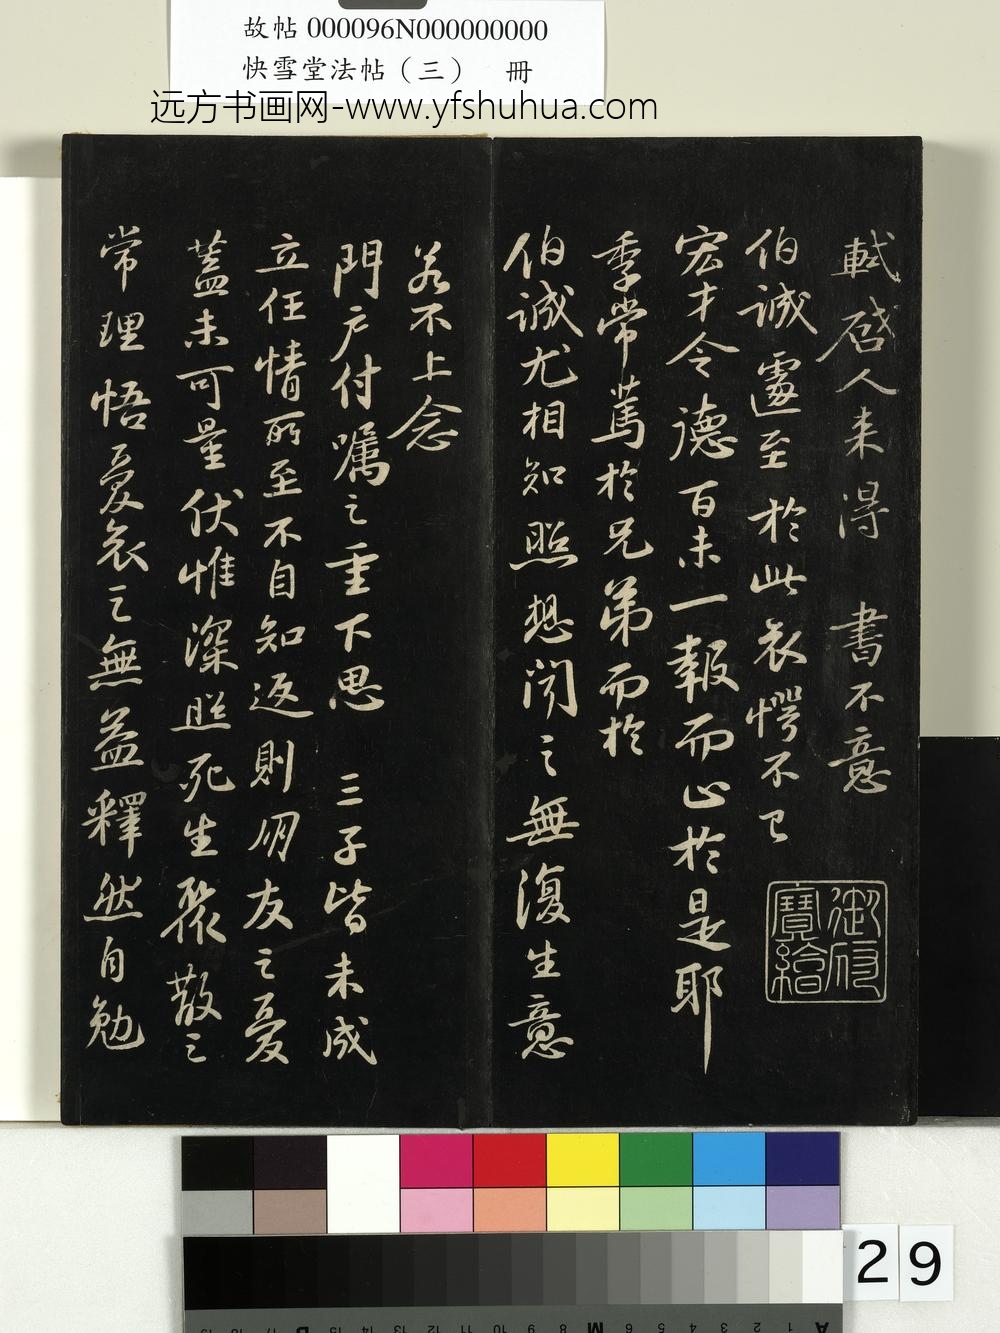 故帖 000096N000000000
快雪堂法帖（三） 冊
远方书画网-www.yfshuhua.com
軾啓人来得 書不意
伯誠遽至於此哀愕不已
宏才令德百未一報而止於是耶
季常篤於兄弟而於
伯誠尤相知照想聞之無復生意
若不上念
門户付囑之重下思 三子皆未成
立任情所至不自知返則朋友之憂
蓋未可量伏惟深照死生聚散之
常理悟憂哀之無益釋然自勉
御府
寶繪
29